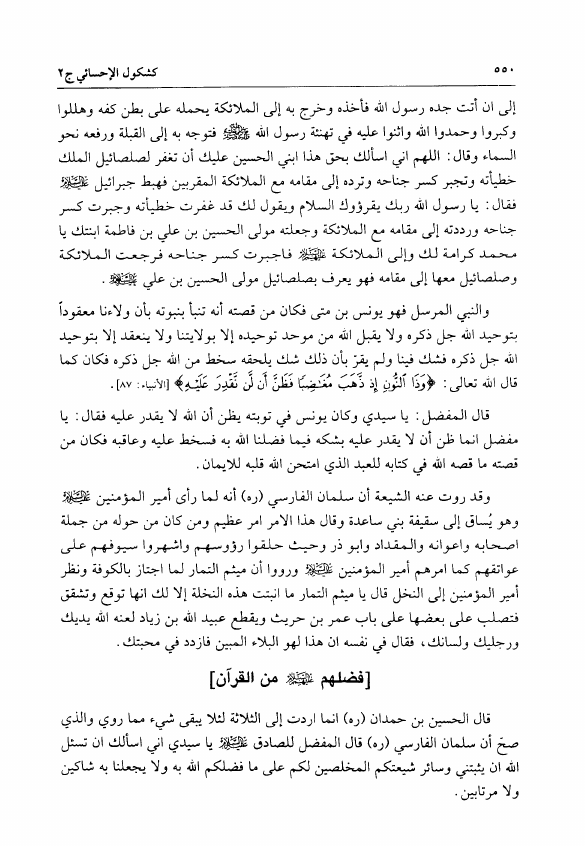 ٥٥٠ كشكول الإحسائي ج٢
إلى ان أتت جده رسول الله فأخذه وخرج به إلى الملائكة يحمله على بطن كفه وهللوا
وكبروا وحمدوا الله واثنوا عليه في تهنئة رسول الله ﷺ فتوجه به إلى القبلة ورفعه نحو
السماء وقال: اللهم اني اسألك بحق هذا ابني الحسين عليك أن تغفر لصلصائيل الملك
خطيأته وتجبر كسر جناحه وترده إلى مقامه مع الملائكة المقربين فهبط جبرائيل عليه السلام
فقال: يا رسول الله ربك يقرؤوك السلام ويقول لك قد غفرت خطيأته وجبرت كسر
جناحه ورددته إلى مقامه مع الملائكة وجعلته مولى الحسين بن علي بن فاطمة ابنتك يا
محمد كرامة لك وإلى الملائكة فاجبرت كسر جناحه فرجعت الملائكة
وصلصائيل معها إلى مقامه فهو يعرف بصلصائيل مولى الحسين بن علي .
والنبي المرسل فهو يونس بن متى فكان من قصته أنه تنبأ بنبوته بأن ولاءنا معقوداً
بتوحيد الله جل ذكره ولا يقبل الله من موحد توحيده إلا بولايتنا ولا ينعقد إلا بتوحيد
الله جل ذكره فشك فينا ولم يقرّ بأن ذلك شك يلحقه سخط من الله جل ذكره فكان كما
قال الله تعالى: ﴿وَذَا ٱلنُّونِ إِذ ذَّهَبَ مُغَٰضِبًا فَظَنَّ أَن لَّن نَّقْدِرَ عَلَيْهِ﴾ [الأنبياء: ٨٧].
قال المفضل: يا سيدي وكان يونس في توبته يظن أن الله لا يقدر عليه فقال: يا
مفضل انما ظن أن لا يقدر عليه بشكه فيما فضلنا الله به فسخط عليه وعاقبه فكان من
قصته ما قصه الله في كتابه للعبد الذي امتحن الله قلبه للايمان.
وقد روت عنه الشيعة أن سلمان الفارسي (ره) أنه لما رأى أمير المؤمنين عليه السلام
وهو يُساق إلى سقيفة بني ساعدة وقال هذا الامر امر عظيم ومن كان من حوله من جملة
اصحابه واعوانه والمقداد وابو ذر وحيث حلقوا رؤوسهم واشهروا سيوفهم على
عواتقهم كما امرهم أمير المؤمنين عليه السلام ورووا أن ميثم التمار لما اجتاز بالكوفة ونظر
أمير المؤمنين إلى النخل قال يا ميثم التمار ما انبتت هذه النخلة إلا لك انها توقع وتشقق
فتصلب على بعضها على باب عمر بن حريث ويقطع عبيد الله بن زياد لعنه الله يديك
ورجليك ولسانك، فقال في نفسه ان هذا لهو البلاء المبين فازدد في محبتك.
[فضلهم من القرآن]
قال الحسين بن حمدان (ره) انما اردت إلى الثلاثة لئلا يبقى شيء مما روي والذي
صحّ أن سلمان الفارسي (ره) قال المفضل للصادق عليه السلام يا سيدي اني اسألك ان تسئل
الله ان يثبتني وسائر شيعتكم المخلصين لكم على ما فضلكم الله به ولا يجعلنا به شاكين
ولا مرتابين.